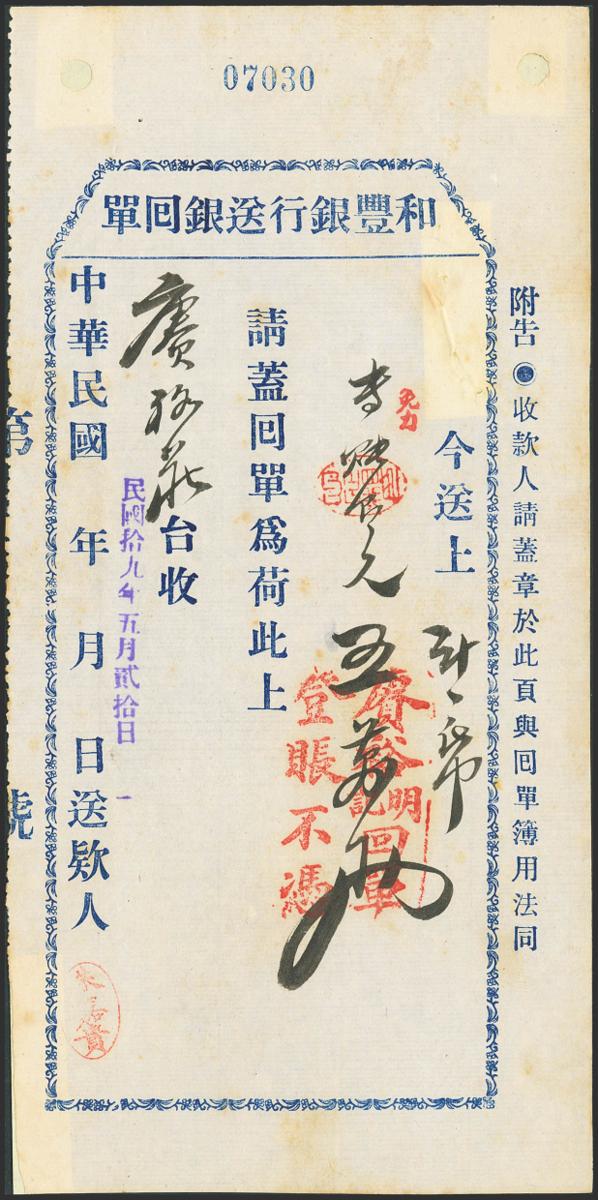 07030
和豐銀行送銀回單
附告◉收款人請蓋章於此頁與回單簿用法同
今送上
計一帋
五萬兩
賡裕
明記
回單
登賬不憑
請蓋回單爲荷此上
賡裕莊
台收
民國拾九年五月貳拾日
中華民國 年 月 日送欵人
第 號